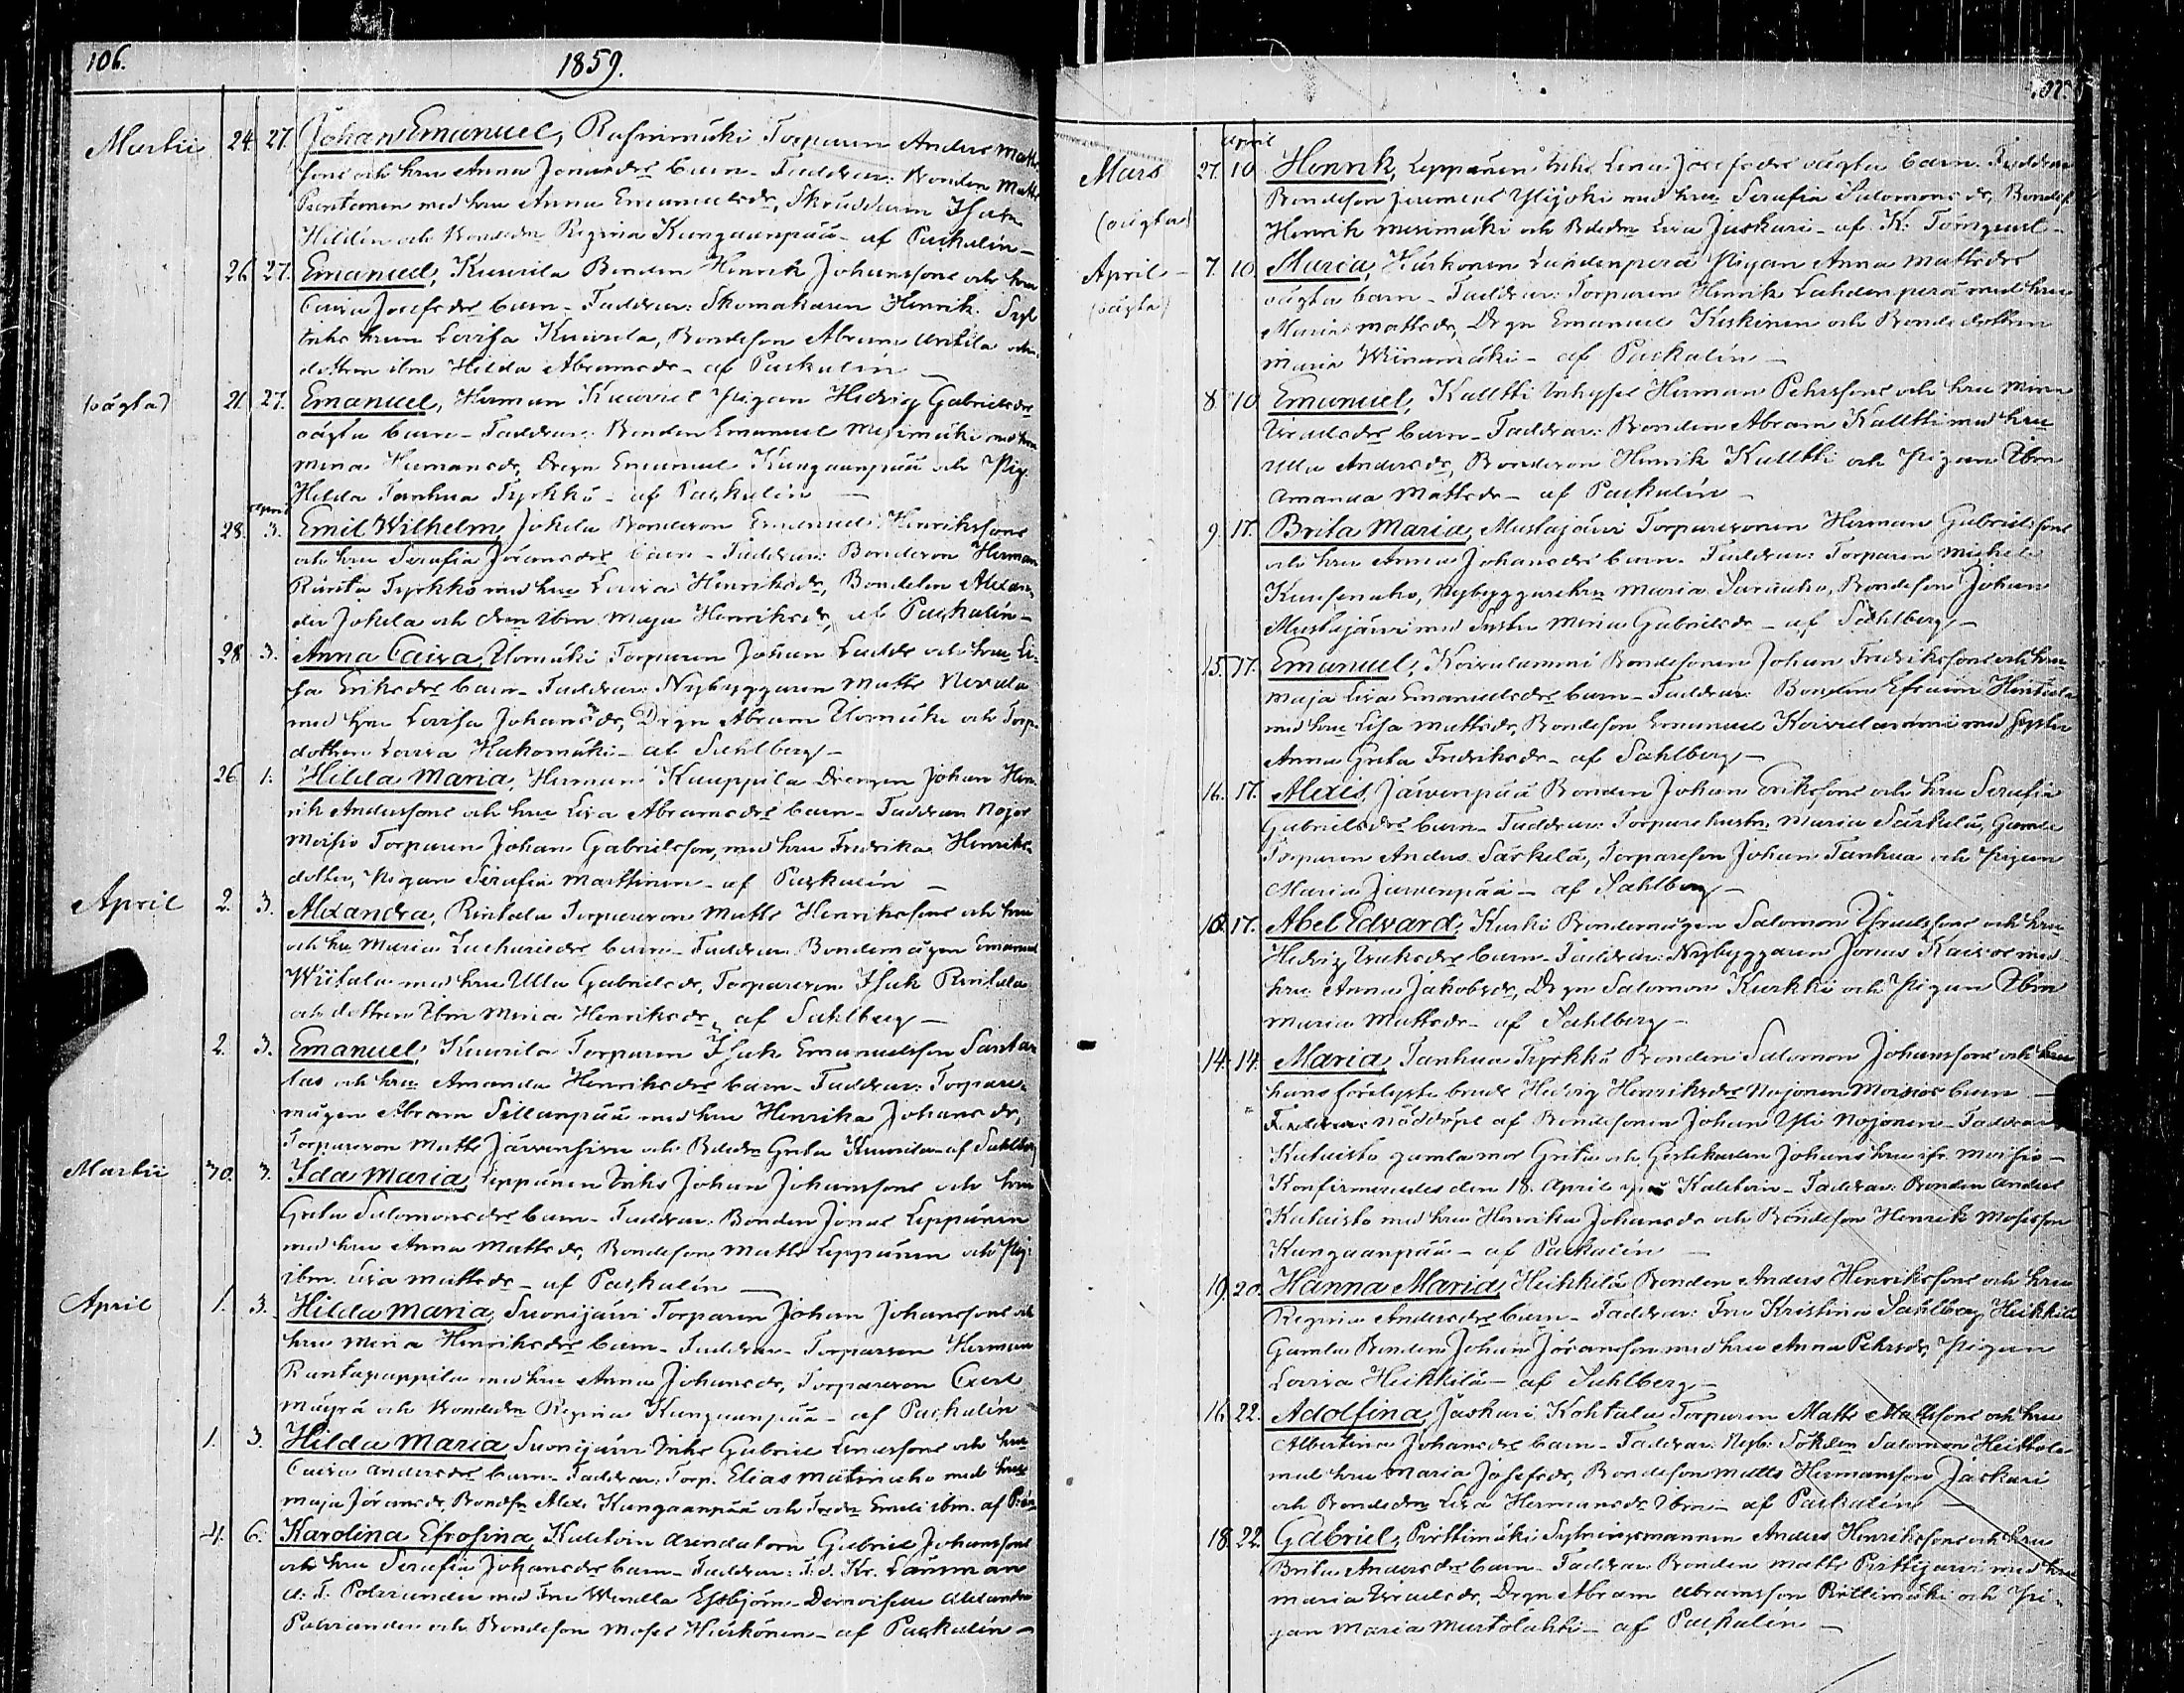 106.
1859.
Martii 24. 27. Johan Emanuel, Torparen Anders Matts
sons och hru Anna Jonasdrs barn - Faddrar: Bonden Matts
med hru Anna Emanuelsdr, Skräddaren Isak
Hildén och Bondedn Regina Kangaanpää - af Paskalín -
26. 27. Emanuel, Kuurila Bonden Henrik Johanssons och hru
Caisa Josefsdrs barn - Faddrar: Skomakaren Henrik
Inhs hrun Lovisa Kuurila, Bondeson Abram Anttila och
dottren ibm Hilda Abramsdr - af Paskalín -
(oägta) 21. 27. Emanuel, Herman Pigan Hedvig Gabrielsdrs
oägta barn - Faddrar: Bonden Emanuel Mesimäki med hru
Mina Hermansdr, Drgn Emanuel Kangaanpää och Pig.
Hilda Tanhua Tyrkkö - af Paskalín -
April
28. 3. Emil Wilhelm, Jokela Bondeson Emanuel Henrikssons
och hru Serafia Jöransdrs barn - Faddrar: Bondeson Herman
Ranta Tyrkkö med hru Lovisa Henriksdr, Bondeson Alexan-
der Jokela och drn ibm Maja Henriksdr, af Paskalín -
28. 3. Anna Caisa, Uomäki Torparen Johan Ladds och hru Li-
sa Eriksdrs barn - Faddrar: Nybyggaren Matts Nevala
med hru Lovisa Johansdr, Drgn Abram Uomäki och Torp.
dottren Lovisa Hakomäki - af Sahlberg -
26. 1. Hilda Maria, Herman Kauppila Drengen Johan Hen-
rik Anderssons och hru Lisa Abramsdrs barn - Faddrar: Nojos
Moisio Torparen Johan Gabrielsson, med hru Fredrika Henriks-
dotter, Pigan Serafia Marttinen - af Paskalín -
April 2. 3. Alexandra, Rintala Torpareson Matts Henrikssons och hru
och hru Maria Zachariedrs barn - Faddrar: Bondemågen Emanuel
Wiitala med hru Ulla Gabrielsdr, Torpareson Isak Rintala
och dottren ibm Mina Henriksdr, af Sahlberg -
2. 3. Emanuel, Kuurila Torparen Isak Emanuelsson Santa-
las och hru Amanda Henriksdrs barn - Faddrar: Torpare-
mågen Abram Sillanpää med hru Henrika Johansdr,
Torpareson Matts Järvensivu och Bdedn Greta Kuurila - af Sahlberg
Martii 30. 3. Ida Maria, Leppänen Inhs Johan Johanssons och hru
Greta Salomonsdrs barn - Faddrar: Bonden Jonas Leppänen
med hru Anna Mattsdr, Bondeson Matts Leppänen och Pig:
ibm. Lisa Mattsdr - af Paskalín -
April 1. 3. Hilda Maria, Suonijärvi Torparen Johan Johanssons och
hru Mina Henriksdrs barn - Faddrar: Torparen Herman
Rantapappila med hru Anna Johansdr, Torpareson Carl
Mäyrä och Bondedn Regina Kangaanpää - af Paskalín
1. 3. Hilda Maria, Suonijärvi Inhs Gabriel och hru
Caisa Andersdrs barn - Faddrar: Torp. Elias Matinaho med hru
Maja Jöransdr, Bondsn Alex. Kangaanpää och ibm. af
4. 6. Karolina Efrosina, Kaletoin Arendatorn Gabriel Johanssons
och hru Serafia Johansdrs barn - Faddrar: T. d. Kr. Länsman
med Fru Wendla Essbjörn - Demoiselle Alexandra
och Bondeson Moses Härkönen - af Paskalín -
107.
April
Mars (oägta) 27. 10. Henrik, Leppänen Inhs Lena Josefsdrs oägta barn. Faddrar
Bondeson Jeremias Ylijoki med hru Serafia Salomonsdr, Bondes.
Henrik Mesimäki och Bdedn Lisa Jaskari - af K: Törnquist -
April (oägta) 7. 10. Maria, Härkönen Lahdenperä Pigan Anna Mattsdrs
oägta barn - Faddrar: Torparen Henrik Lahdenperä med hru
Maria Mattsdr, Drgn Emanuel Keskinen och Bondedottren
Maria Wiinamäki - af Paskalín -
8. 10. Emanuel, Kalltti Inhyses Herman Pehrssons och hru Mina
Israelsdrs barn - Faddrar: Bonden Abram Kalltti med hru
Ulla Andersdr, Bondeson Henrik Kalltti och Pigan Ibm
Amanda Mattsdr - af Paskalín -
9. 17. Brita Maria, Mustajärvi Torparesonen Herman Gabrielssons
och hru Anna Johansdrs barn - Faddrar: Torparen Michel
Kansonaho, Nybyggarehrn Maria Saranaho, Bondeson Johan
Mustajärvi med Syster Mina Gabrielsdr - af Sahlberg -
15. 17. Emanuel, Koivulammi Bondesonen Johan Fredrikssons och hru
Maja Lisa Emanuelsdrs barn - Faddrar: Bonden Efraim Hintsala
med hru Lisa Mattsdr, Bondeson Emanuel Koivulammi med Syster
Anna Greta Fredriksdr - af Sahlberg -
16. 17. Alexis, Järvenpää Bonden Johan Erikssons och hru Serafia
Gabrielsdrs barn - Faddrar: Torparehustr. Maria Särkelä, Gamla
Torparen Anders Särkelä, Torpareson Johan Tanhua och Pigan
Maria Jarvenpää - af Sahlberg -
10. 17. Abel Edvard, Kurki Bondemågen Salomon Israelssons och hru
Hedvig Isaksdrs barn - Faddrar: Nybyggaren Jonas med
hru Anna Jakobsdr, Drgn Salomon Kurkki och Pigan Ibm
Maria Mattsdr - af Sahlberg -
14. 14. Maria, Tanhua Tyrkkö Bonden Salomon Johanssons och hru
hans förelysta brud Hedvig Henriksdrs Nojonen Moisios barn -
Faddrar: nöddöpt af Bondesonen Johan Yli Nojonen - Faddrar
Kataisto gamla mor Greta och Johans hru ifr. Moisio -
Konfirmerades den 18. April på Kaletoin - Faddrar: Bonden Anders
Kataisto med hru Henrika Johansdr och Bondeson Henrik Mosesson
Kangaanpää - af Paskalín -
19. 20. Hanna Maria, Heikkilä Bonden Anders Henrikssons och hru
Regina Andersdrs barn - Faddrar: Fru Kristina Sahlberg, Heikkilä
Gamla Bonden Johan Jöransson med hru Anna Pehrsdr, Pigan
Lovisa Heikkilä - af Sahlberg -
16. 22. Adolfina, Jaskari Kohtala Torparen Matts Mattssons och hru
Albertina Johansdrs barn - Faddrar: Nyb: Sokden Salomon
med hru Maria Josefsdr, Bondeson Matts Hermansson Jaskari
och Bondedn Lisa Hermansdr Ibm - af Paskalín -
18. 22. Gabriel, Pirttimäki Sytningsmannen Anders Henrikssons och hru
Brita Andersdrs barn - Faddrar: Bonden Matts Pirttijärvi med hru
Maria Israelsdr, Drgn Abram Abramsson Pirttimäki och Pi-
gan Maria Murtolahti - af Paskalín -